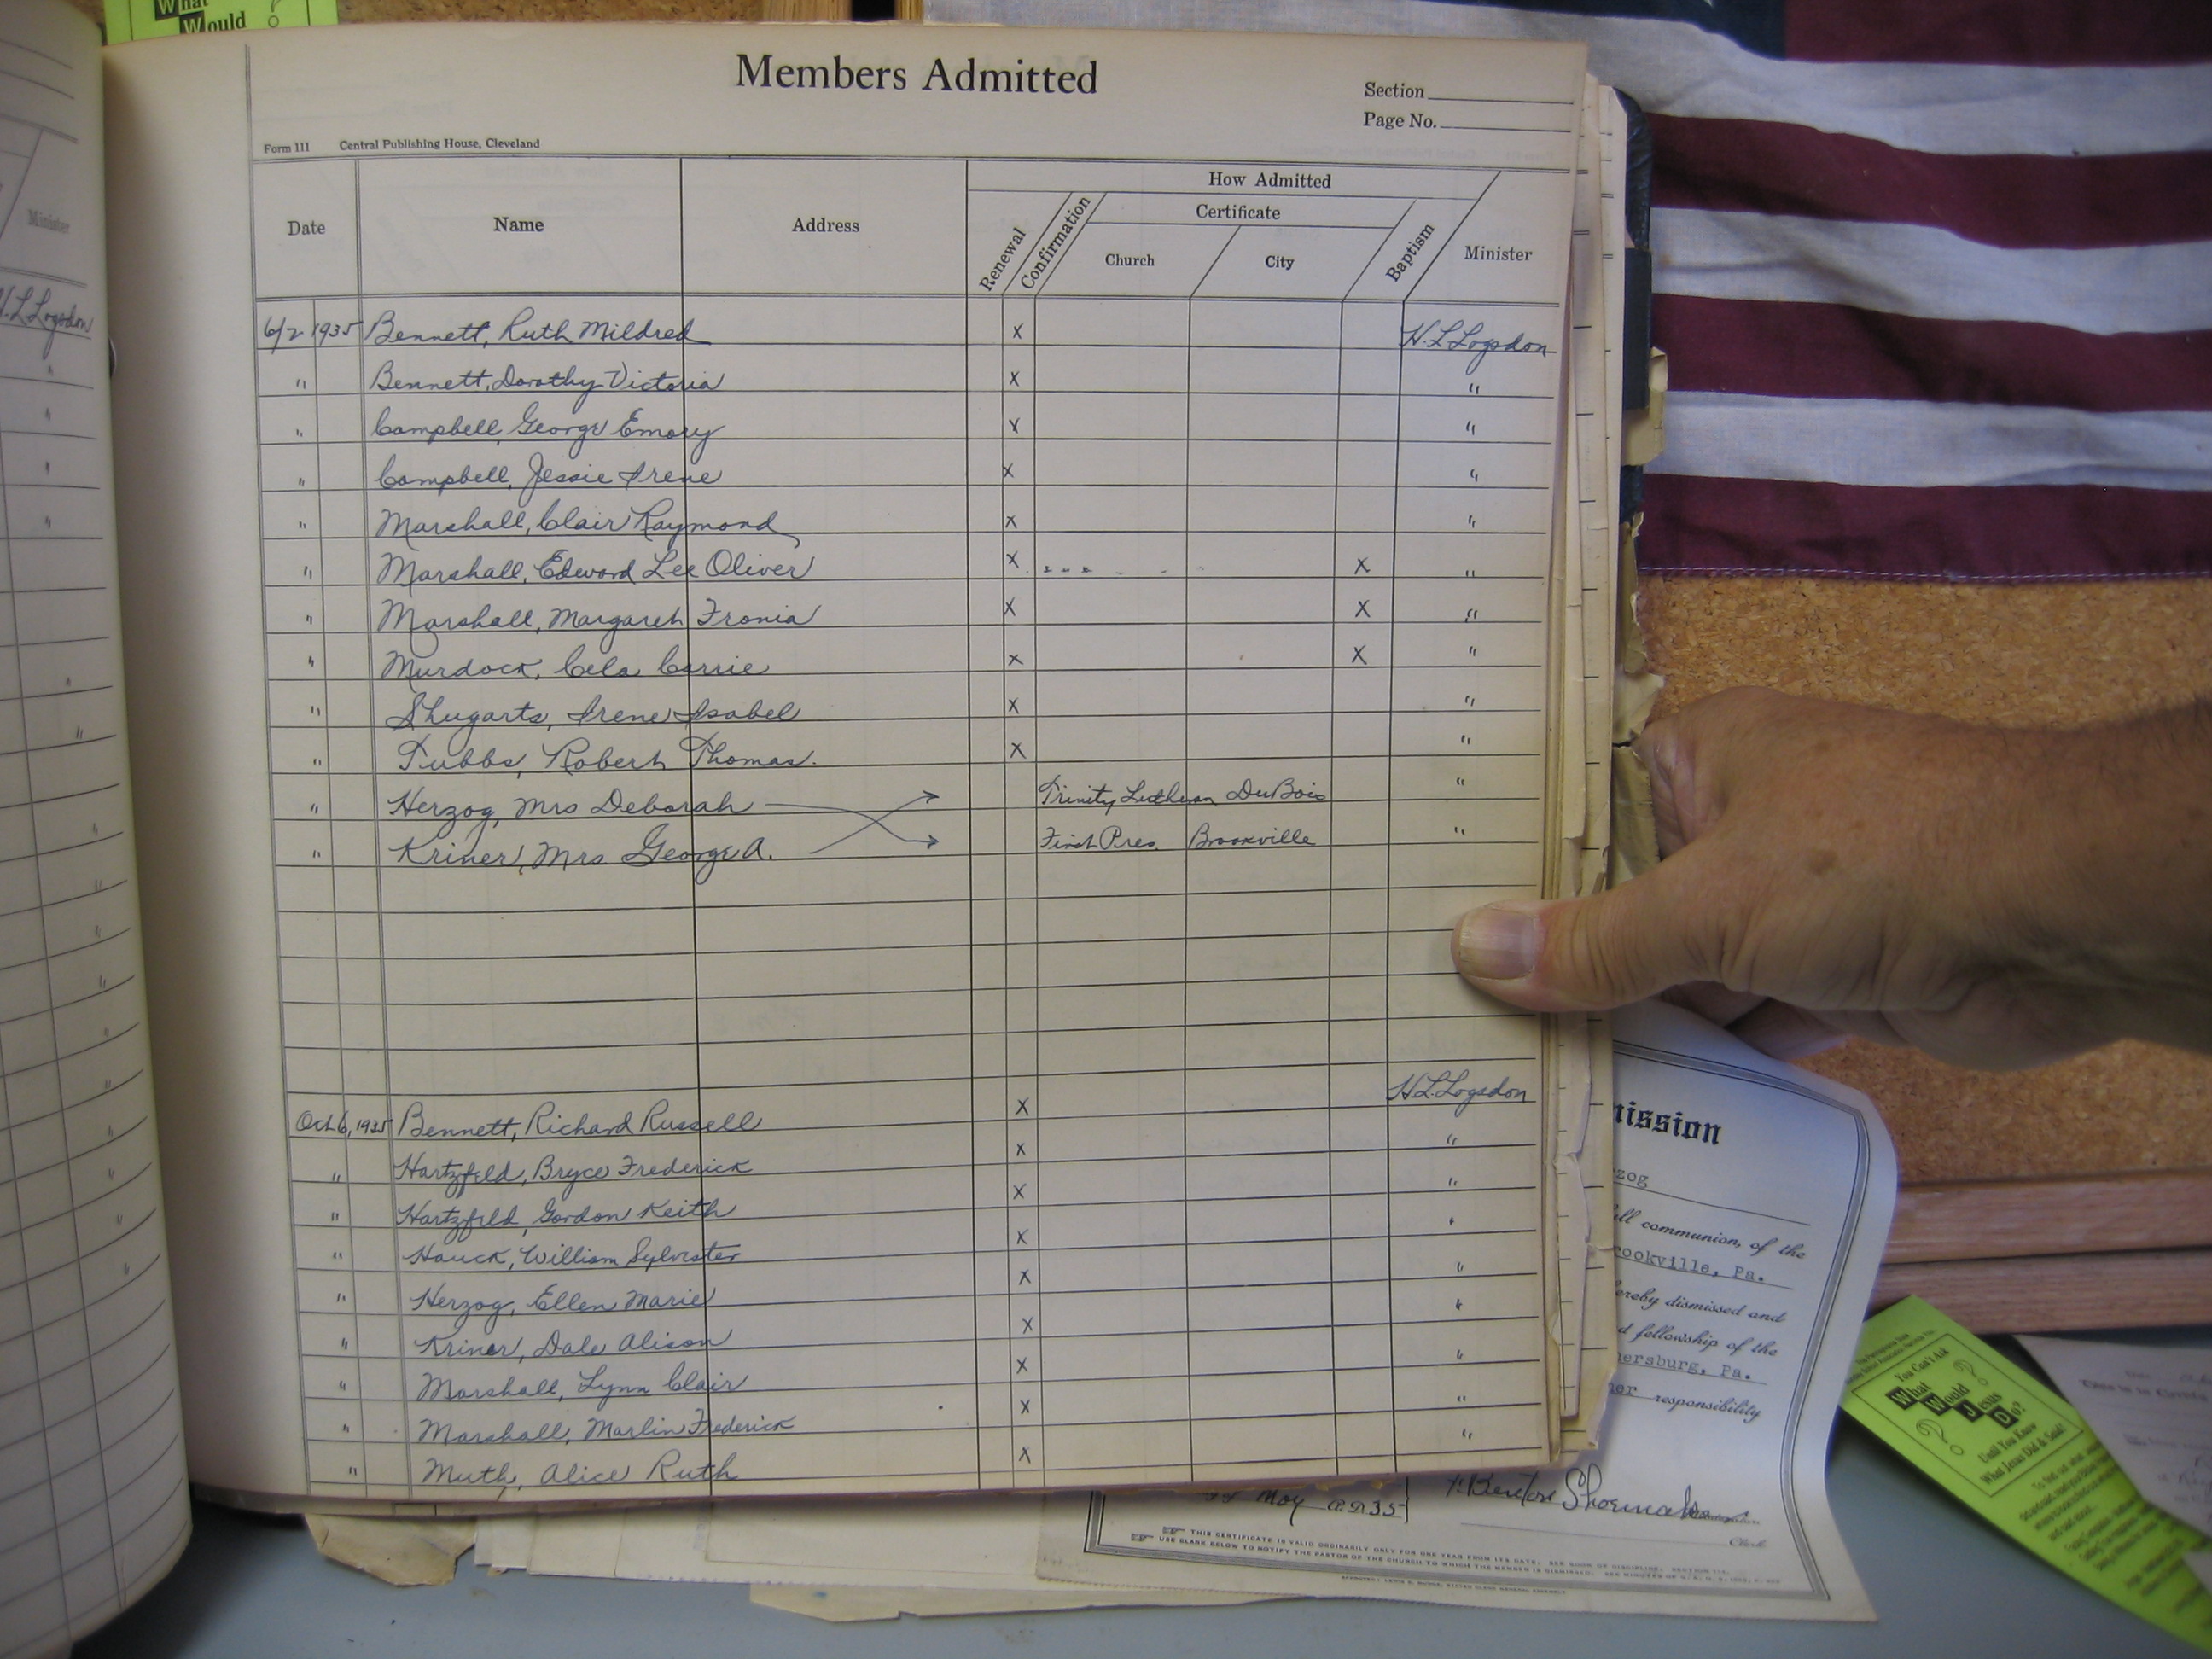 What
Would
Minister
H.L Logsdon
Members Admitted
Section
Page No.
Form 111 Central Publishing House, Cleveland
Date Name Address How Admitted
Renewal Confirmation Certificate Church City Baptism Minister
6/2 1935 Bennett, Ruth Mildred x H.L Logsdon
" Bennett, Dorothy Victoria x "
" Campbell, George Emory x "
" Campbell, Jessie Irene x "
" Marshall, Clair Raymond x "
" Marshall, Edward Lee Oliver x x "
" Marshall, Margaret Fronia x x "
" Murdock, Cela Carrie x x "
" Shugarts, Irene Isabel x "
" Tubbs, Robert Thomas. x "
" Herzog, Mrs Deborah Trinity Lutheran DuBois "
" Kriner, Mrs George A. First Pres. Brookville "
Oct 6, 1935 Bennett, Richard Russell x H.L.Logsdon
" Hartzfeld, Bryce Frederick x "
" Hartzfeld, Gordon Keith x "
" Houck, William Sylvester x "
" Herzog, Ellen Marie x "
" Kriner, Dale Alison x "
" Marshall, Lynn Clair x "
" Marshall, Marlin Frederick x "
" Muth, Alice Ruth x "
mission
zog
ll communion, of the
rookville, Pa.
ereby dismissed and
d fellowship of the
ersburg, Pa.
er responsibility
May A.D. 35
Benton Shoemaker
Clerk
THIS CERTIFICATE IS VALID ORDINARILY ONLY FOR ONE YEAR FROM ITS DATE;
USE BLANK BELOW TO NOTIFY THE PASTOR OF THE CHURCH TO WHICH THE MEMBER IS DISMISSED.
You Can't Ask
What
Would
Jesus
Do?
Until You Know
What Jesus Did & Said!